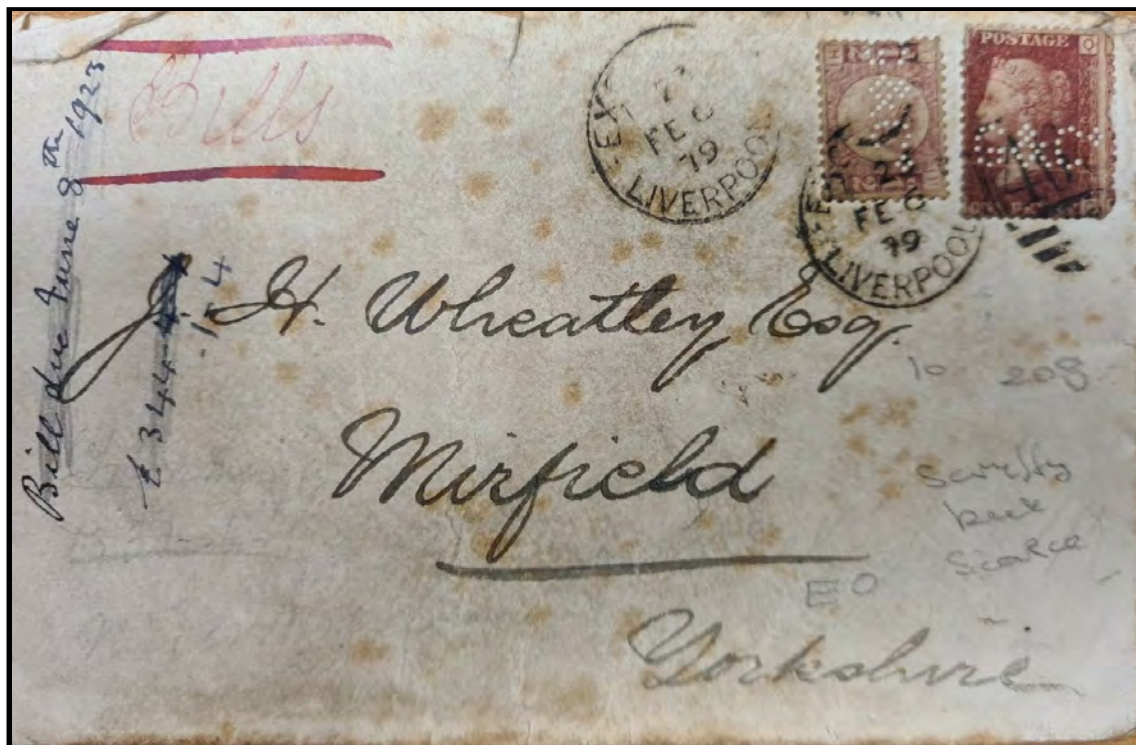 Bills
Bill due June 8th 1923
£344-4
EX
FE 6
79
LIVERPOOL
POSTAGE
FE 6
79
LIVERPOOL
J. H. Wheatley Esq.
Mirfield
Yorkshire
10 208
back
Scarce
EO